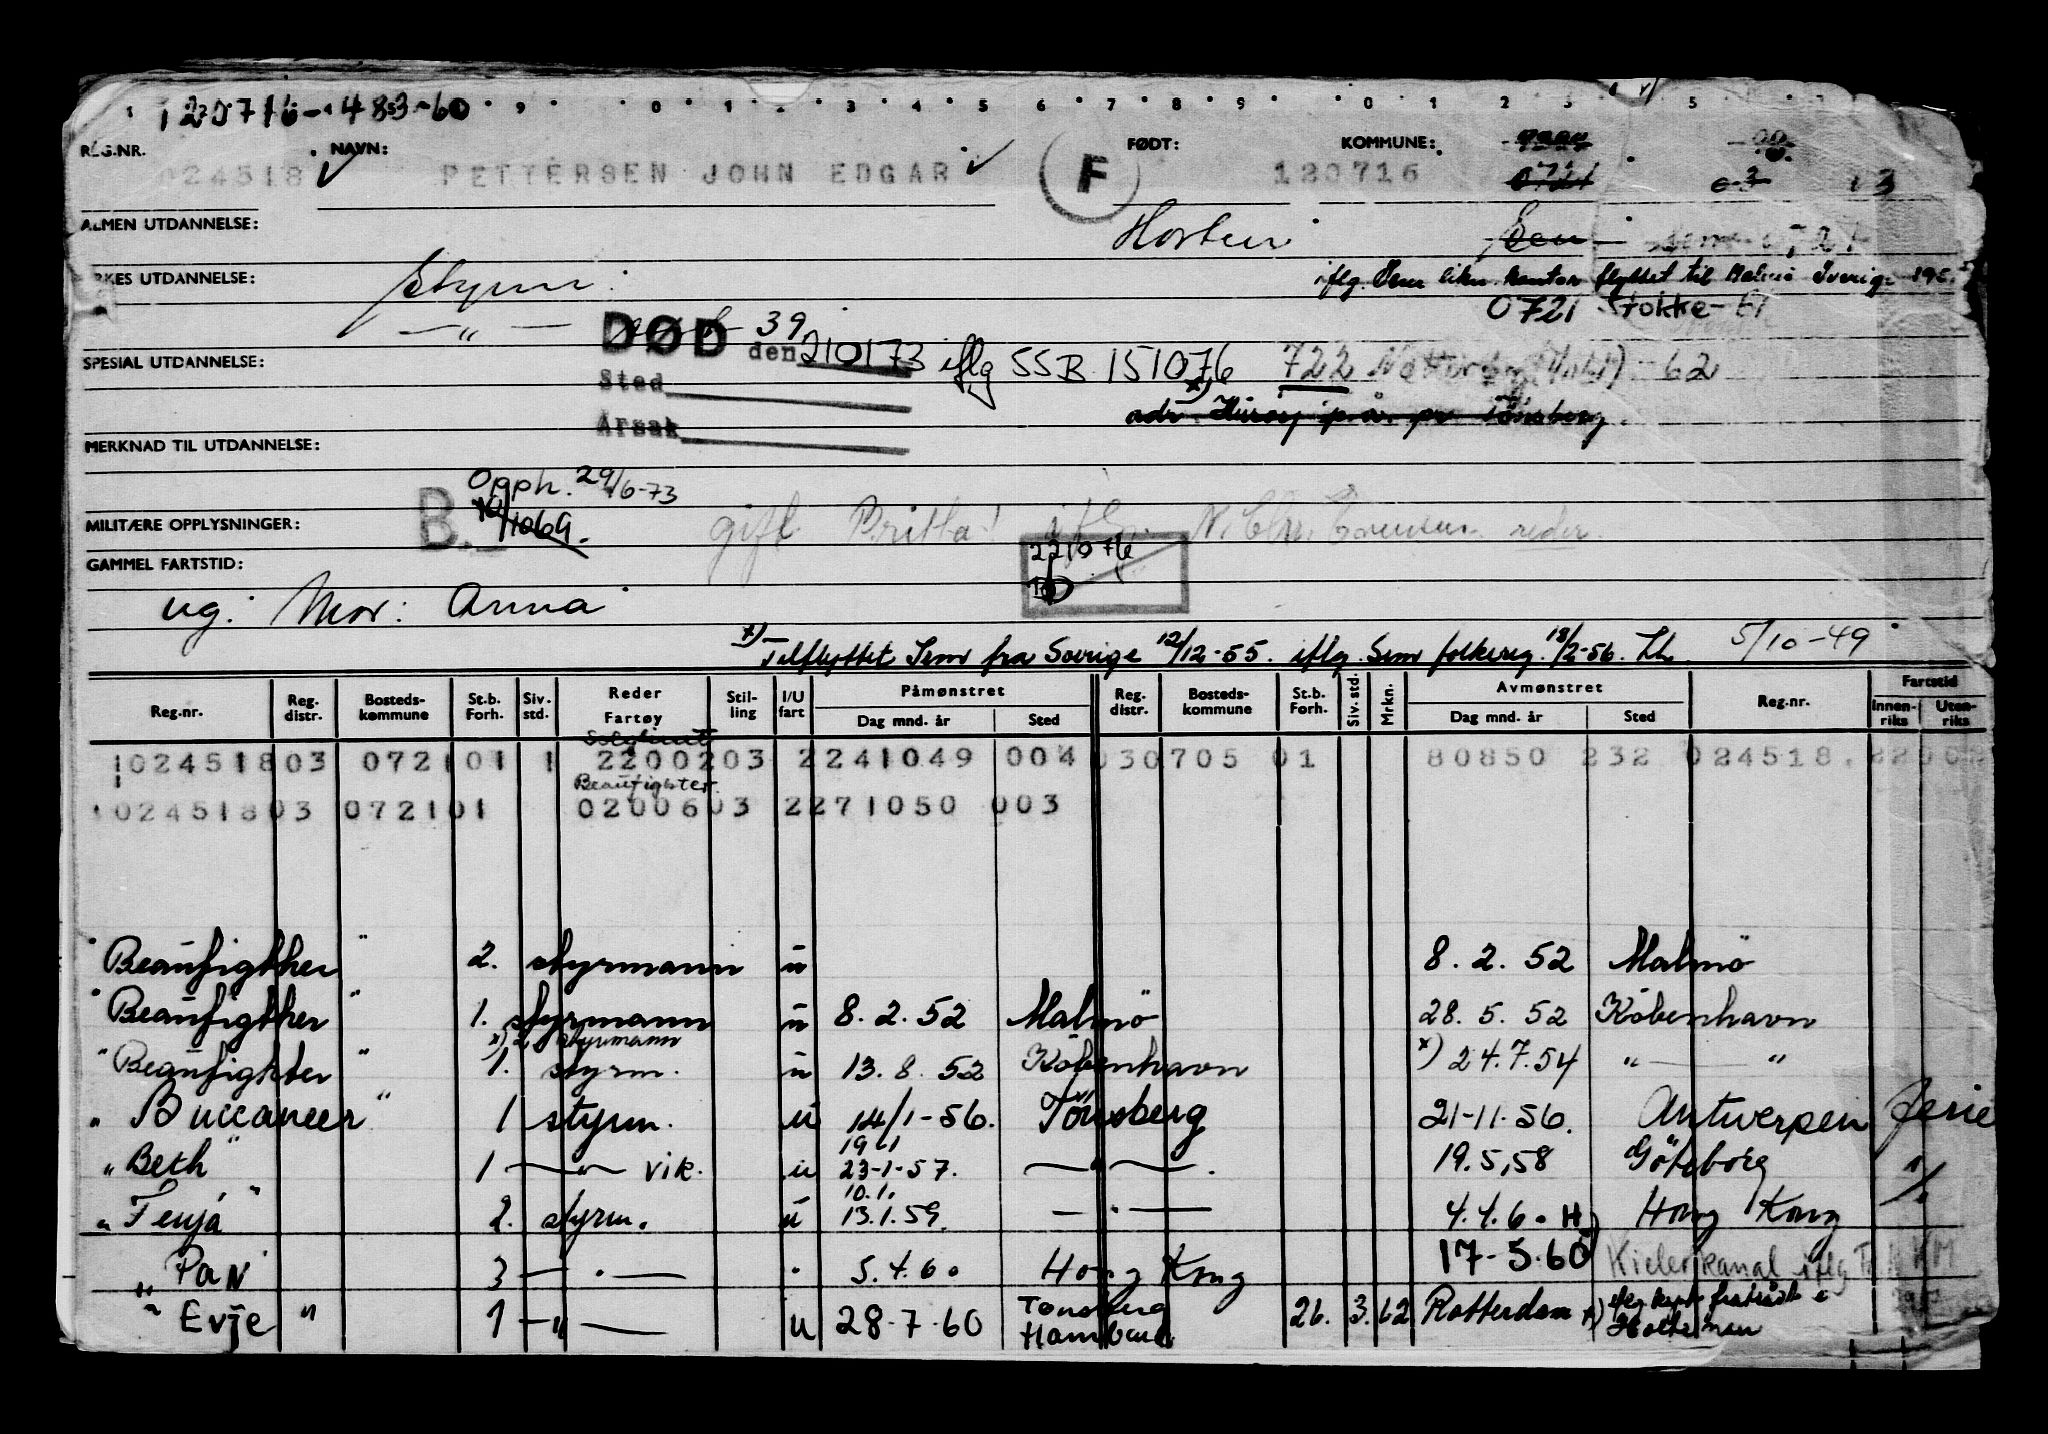 120716-48360
REG.NR. NAVN: FØDT: KOMMUNE:
024518 PETTERSEN JOHN EDGAR F 120716 0721 3
ALMEN UTDANNELSE: Horten Sem
YRKES UTDANNELSE: Styrm. iflg. Sem likn. kontor flyttet til Malmö Sverige
— " — 39 0721 Stokke - 61
DØD den 210173 iflg SSB 151076 722 Nøtterøy - 62
SPESIAL UTDANNELSE:
Sted
adr. Husøy p.å. pr Tönsberg.
Årsak
MERKNAD TIL UTDANNELSE:
Opph. 29/6-73
MILITÆRE OPPLYSNINGER: B. 10/1069. gift Britta iflg. N. Chr. reder.
GAMMEL FARTSTID: 221076
ug. Mor: Anna
x) Tilflyttet Sem fra Sverige 12/12-55. iflg. Sem folkereg. 18/2-56. 5/10-49
Reg.nr. Reg. distr. Bosteds-kommune St.b. Forh. Siv. std. Reder Fartøy Stil-ling I/U fart Påmønstret Dag mnd. år Sted Reg. distr. Bosteds-kommune St.b. Forh. Siv. std. Mrkn. Avmønstret Dag mnd. år Sted Reg.nr. Fartstid Innen-riks Uten-riks
Solglimt
102451803 072101 1 2200203 2241049 004 030705 01 80850 232 024518
Beaufighter.
102451803 072101 0200603 2271050 003
" Beaufigther " 2. styrmann u 8.2.52 Malmö
" Beaufigther " 1. styrmann u 8.2.52 Malmö 28.5.52 København
x) 2. styrmann
" Beaufighter " 1. styrm. u 13.8.52 København x) 24.7.54 " — "
" Buccaneer " 1 styrm. u 14/1-56. Tönsberg 21-11-56. Antwerpen ferie
19/1
" Beth " 1 — " — vik. u 23-1-57. — " — . 19.5.58 Göteborg "
10.1.
" Fenja " 2. styrm. u 13.1.59. — " — 4.4.60 Hong Kong
" Pan 3 — " — " 5.4.60 Hong Kong 17-5-60 Kielerkanal iflg
" Evje " 1 — " — u 28-7-60 Tønsberg Hamburg 26. 3. 62 Rotterdam x) iflg kapt.